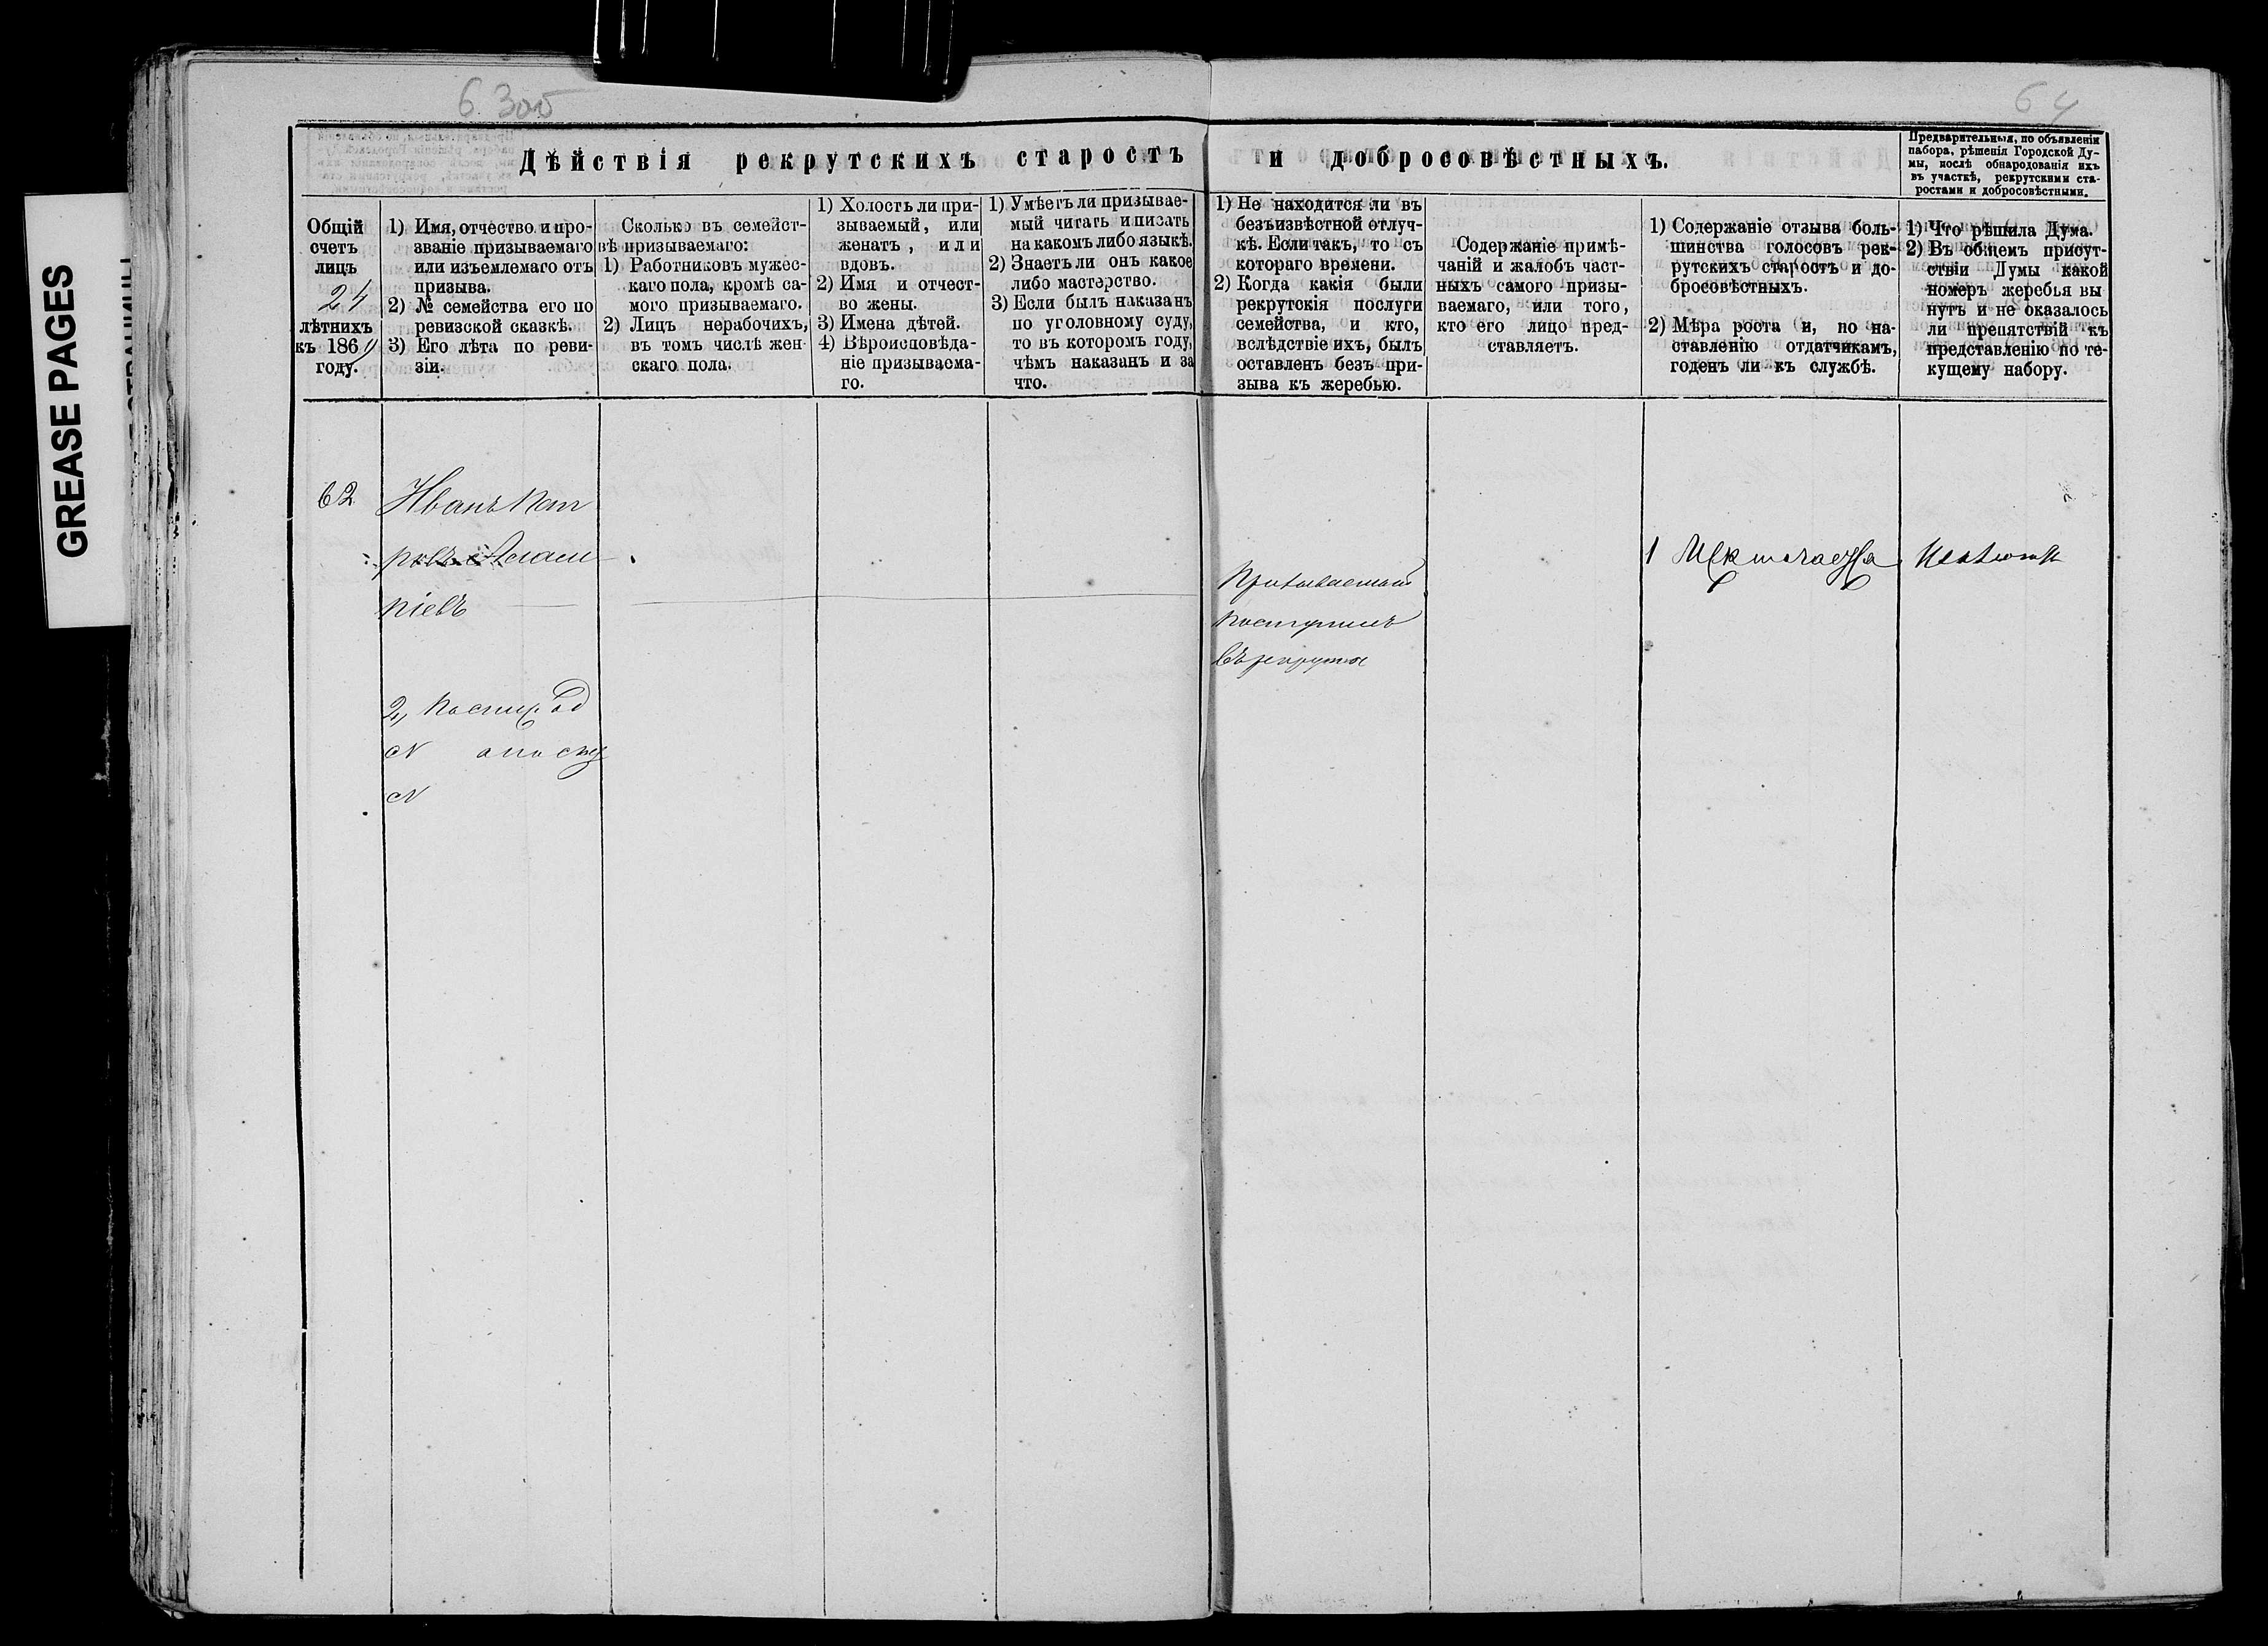 GREASE PAGES
6. 305
64
Дѣйствія рекрутскихъ старостъ и добросовѣстныхъ.
Предварительныя, по объявленіи
набора, рѣшенія Городской Ду-
мы, послѣ обнародованія ихъ
въ участкѣ, рекрутскими ста-
ростами и добросовѣстными.
Общій
счетъ
лицъ
24
лѣтнихъ
къ 186
году.
1) Имя, отчество и про-
званіе призываемаго
или изъемлемаго отъ
призыва.
2) № семейства его по
ревизской сказкѣ.
3) Его лѣта по реви-
зіи.
Сколько въ семейст-
вѣ призываемаго:
1) Работниковъ мужес-
каго пола, кромѣ са-
мого призываемаго.
2) Лицъ нерабочихъ,
въ томъ числѣ жен-
скаго пола.
1) Холостъ ли при-
зываемый, или
женатъ, или
вдовъ.
2) Имя и отчест-
во жены.
3) Имена дѣтей.
4) Вѣроисповѣда-
ніе призываема-
го.
1) Умѣетъ ли призывае-
мый читать и писать
на какомъ либо языкѣ.
2) Знаетъ ли онъ какое
либо мастерство.
3) Если былъ наказанъ
по уголовному суду,
то въ которомъ году,
чѣмъ наказанъ и за
что.
1) Не находится ли въ
безъизвѣстной отлуч-
кѣ. Если такъ, то съ
котораго времени.
2) Когда какія были
рекрутскія послуги
семейства, и кто,
вслѣдствіе ихъ, былъ
оставленъ безъ при-
зыва къ жеребью.
Содержаніе примѣ-
чаній и жалобъ част-
ныхъ самого призы-
ваемаго, или того,
кто его лицо пред-
ставляетъ.
1) Содержаніе отзыва боль-
шинства голосовъ рек-
рутскихъ старостъ и до-
бросовѣстныхъ.
2) Мѣра роста и, по на-
ставленію отдатчикамъ,
годенъ ли къ службѣ.
1) Что рѣшила Дума.
2) Въ общемъ присут-
ствіи Думы какой
номеръ жеребья вы
нутъ и не оказалось
ли препятствій къ
представленію по те-
кущему набору.
62
Иванъ Пет
ровъ
ніевъ
2,
N
N
Призываемый
поступилъ
въ рекруты
1